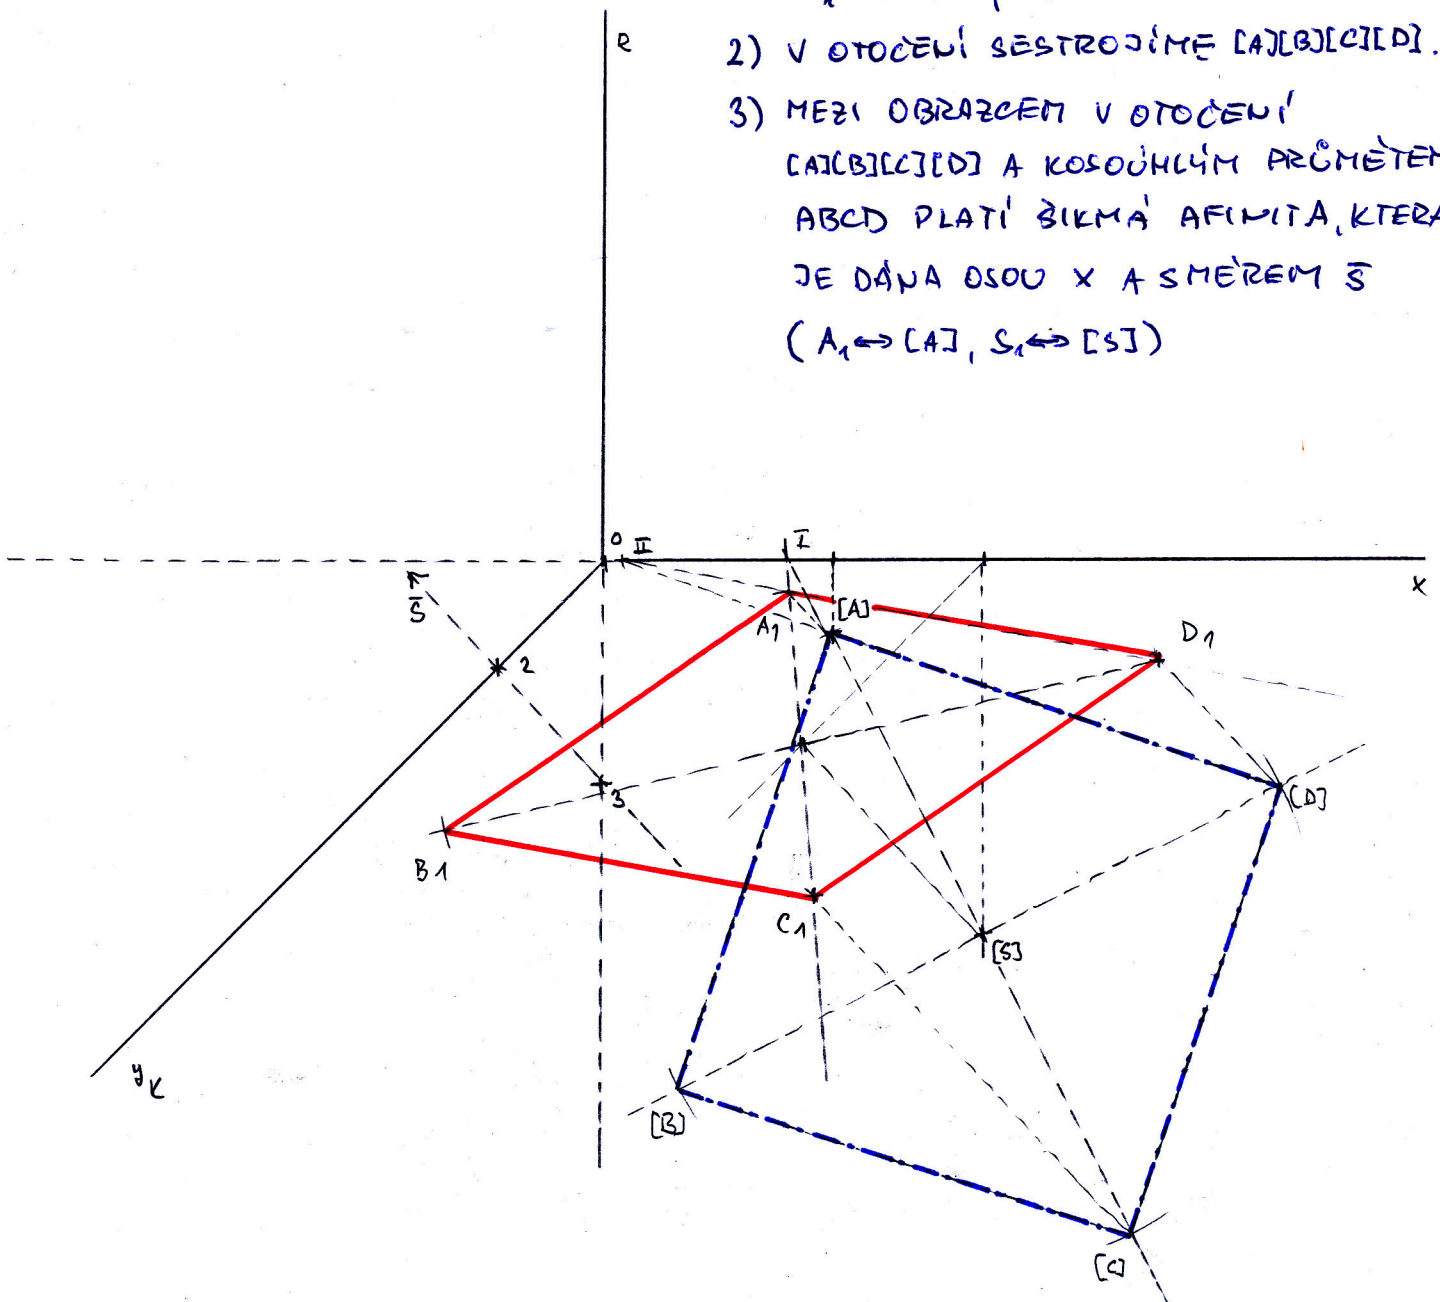 2) V OTOČENÍ SESTROJÍME [A][B][C][D].
3) MEZI OBRAZCEM V OTOČENÍ
[A][B][C][D] A KOSOÚHLÝM PRŮMĚTEM
ABCD PLATÍ ŠIKMÁ AFINITA, KTERÁ
JE DÁNA OSOU X A SMĚREM S̄
(A₁↔[A], S₁↔[S])
0
II
I
X
S̄
2
A1
[A]
D1
3
[D]
B1
C1
[S]
yK
[B]
[C]